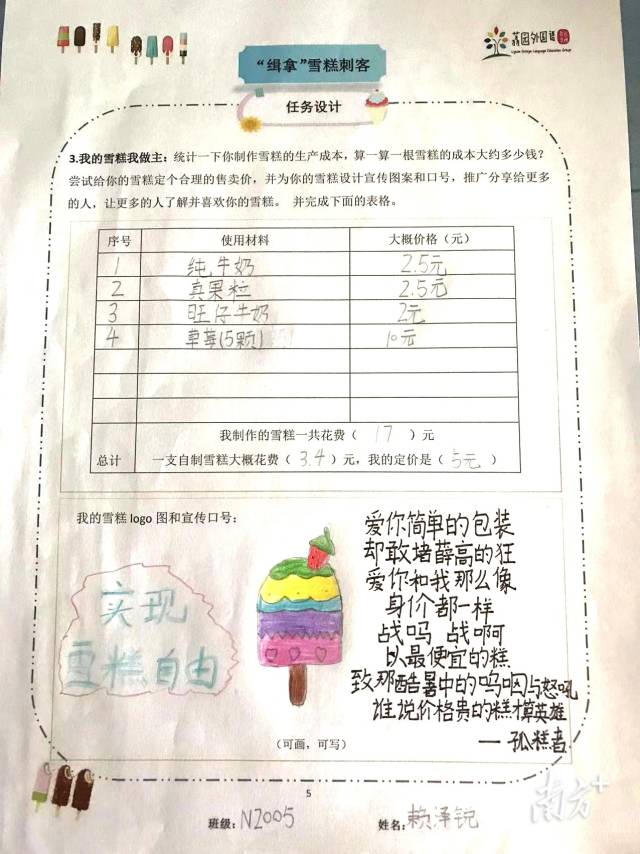 荔园外国语
Liyuan Foreign Language Education Group
“缉拿”雪糕刺客
任务设计
3.我的雪糕我做主：统计一下你制作雪糕的生产成本，算一算一根雪糕的成本大约多少钱？
尝试给你的雪糕定个合理的售卖价，并为你的雪糕设计宣传图案和口号，推广分享给更多
的人，让更多的人了解并喜欢你的雪糕。 并完成下面的表格。
序号 使用材料 大概价格（元）
1 纯牛奶 2.5元
2 真果粒 2.5元
3 旺仔牛奶 2元
4 草莓(5颗) 10元
我制作的雪糕一共花费（ 17 ）元
总计 一支自制雪糕大概花费（ 3.4 ）元，我的定价是（ 5元 ）
我的雪糕 logo 图和宣传口号：
实现
雪糕自由
爱你简单的包装
却敢堵薛高的狂
爱你和我那么像
身价都一样
战吗 战啊
以最便宜的糕
致那酷暑中的呜咽与怒吼
谁说价格贵的糕才算英雄
— 孤糕者
（可画，可写）
5
班级：N2005 姓名：赖泽锐
南方+